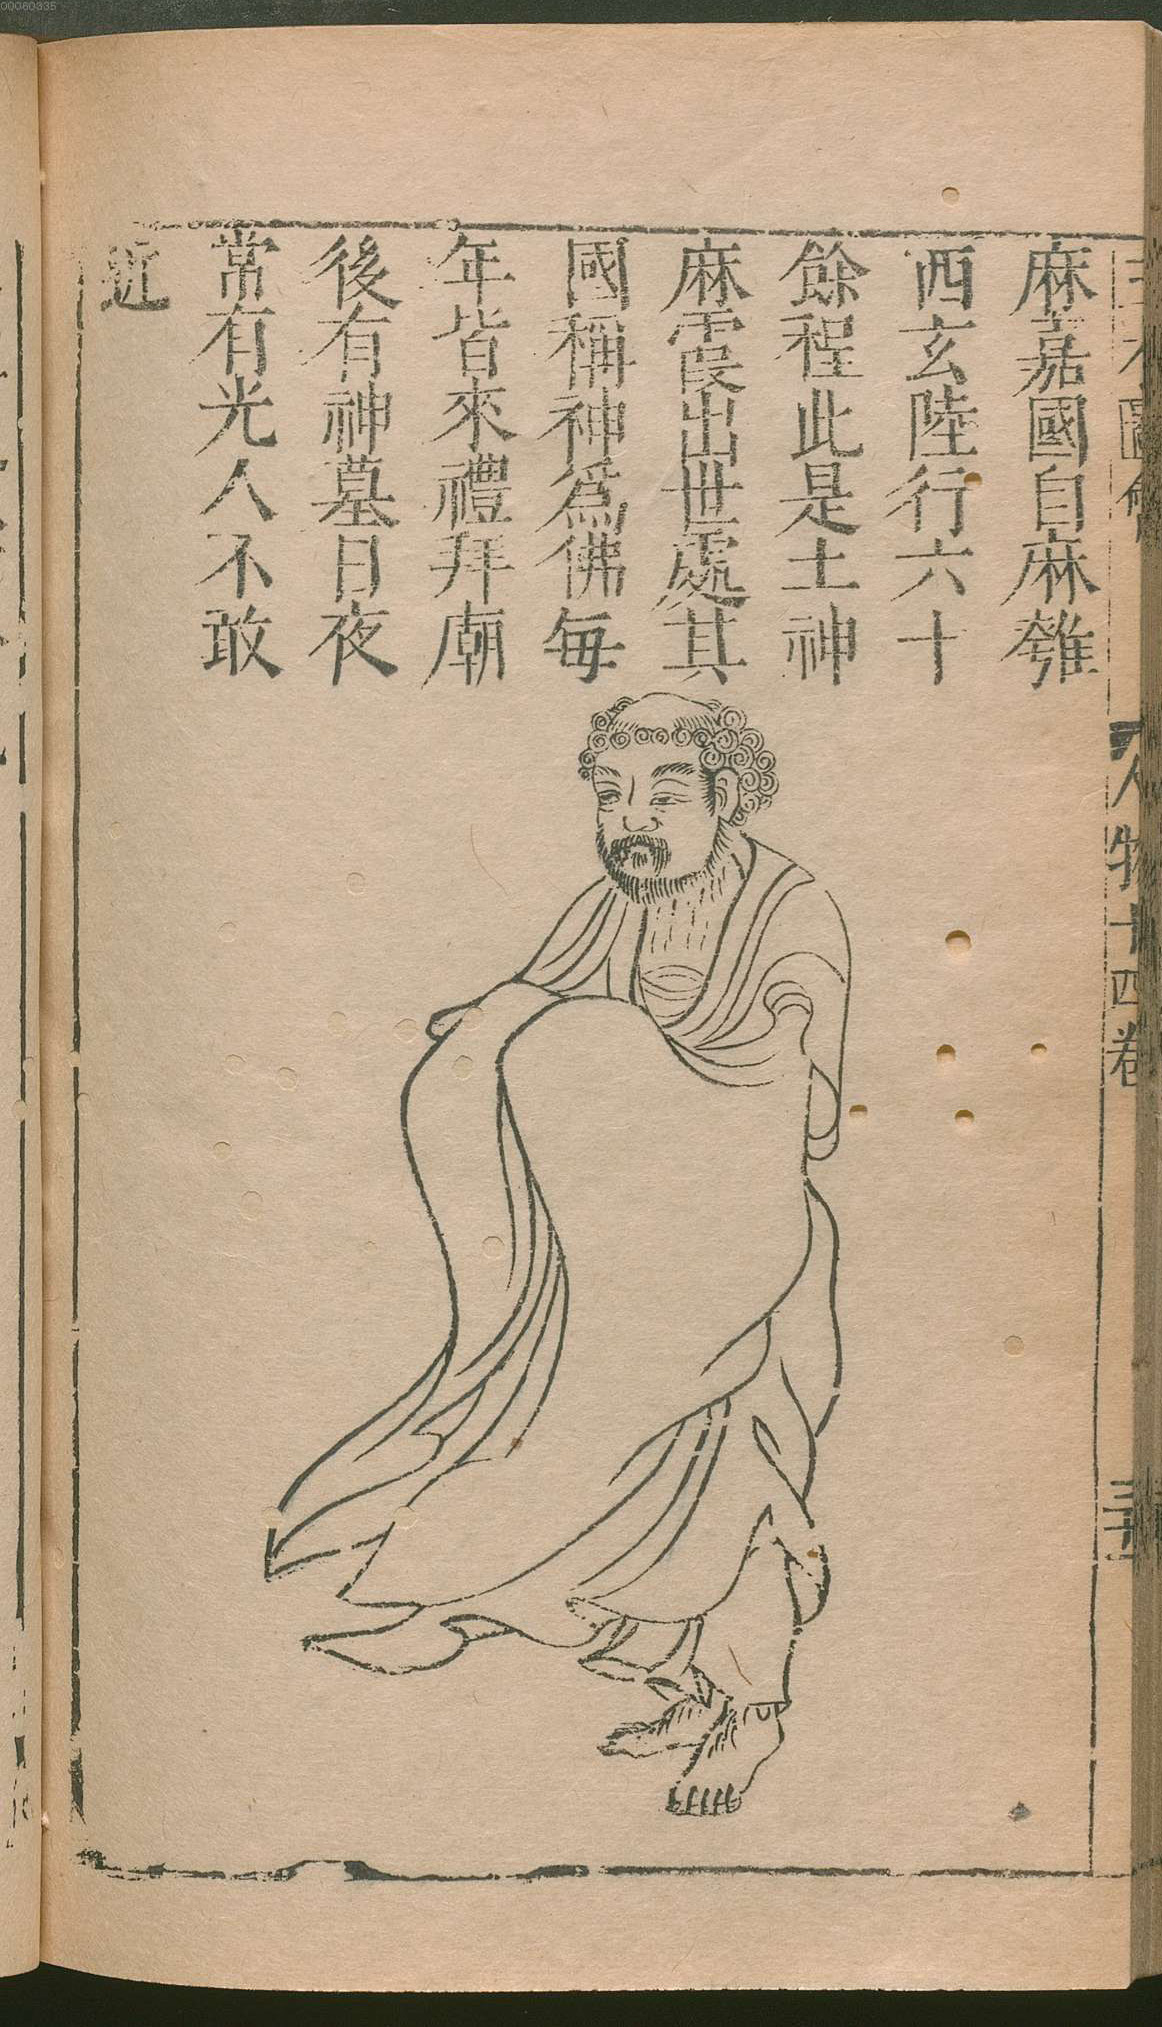 麻嘉國自麻雒
西玄陸行六十
餘程此是土神
麻霞出世處其
國稱神爲佛每
年皆來禮拜廟
後有神墓日夜
常有光人不敢
近
人物十四卷
00060335